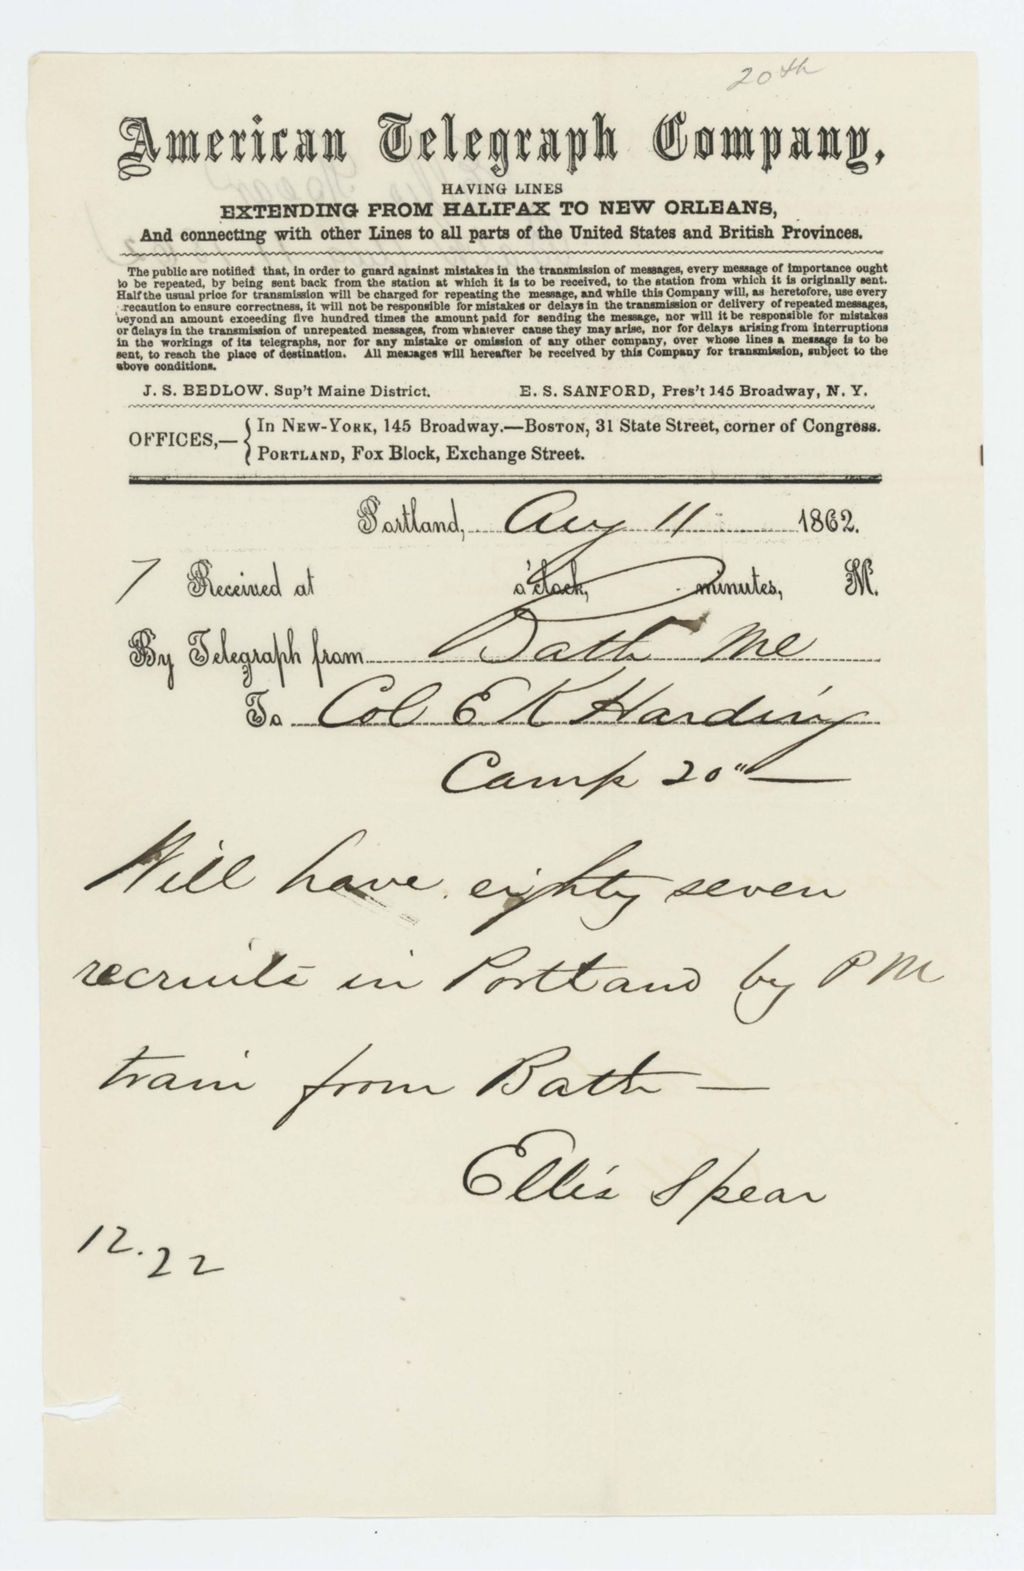 20th
American Telegraph Company,
HAVING LINES
EXTENDING FROM HALIFAX TO NEW ORLEANS,
And connecting with other Lines to all parts of the United States and British Provinces.
The public are notified that, in order to guard against mistakes in the transmission of messages, every message of importance ought
to be repeated, by being sent back from the station at which it is to be received, to the station from which it is originally sent.
Half the usual price for transmission will be charged for repeating the message, and while this Company will, as heretofore, use every
recaution to ensure correctness, it will not be responsible for mistakes or delays in the transmission or delivery of repeated messages,
beyond an amount exceeding five hundred times the amount paid for sending the message, nor will it be responsible for mistakes
or delays in the transmission of unrepeated messages, from whatever cause they may arise, nor for delays arising from interruptions
in the workings of its telegraphs, nor for any mistake or omission of any other company, over whose lines a message is to be
sent, to reach the place of destination. All messages will hereafter be received by this Company for transmission, subject to the
above conditions.
J. S. BEDLOW. Sup't Maine District. E. S. SANFORD, Pres't 145 Broadway, N. Y.
OFFICES,— { In NEW-YORK, 145 Broadway.—BOSTON, 31 State Street, corner of Congress.
PORTLAND, Fox Block, Exchange Street.
Portland, Aug 11 1862.
7 Received at o'clock, minutes, M.
By Telegraph from Bath Me
To Col E K Harding
Camp 20" —
Will have eighty seven
recruits in Portland by P M
train from Bath —
Ellis Spear
12.22